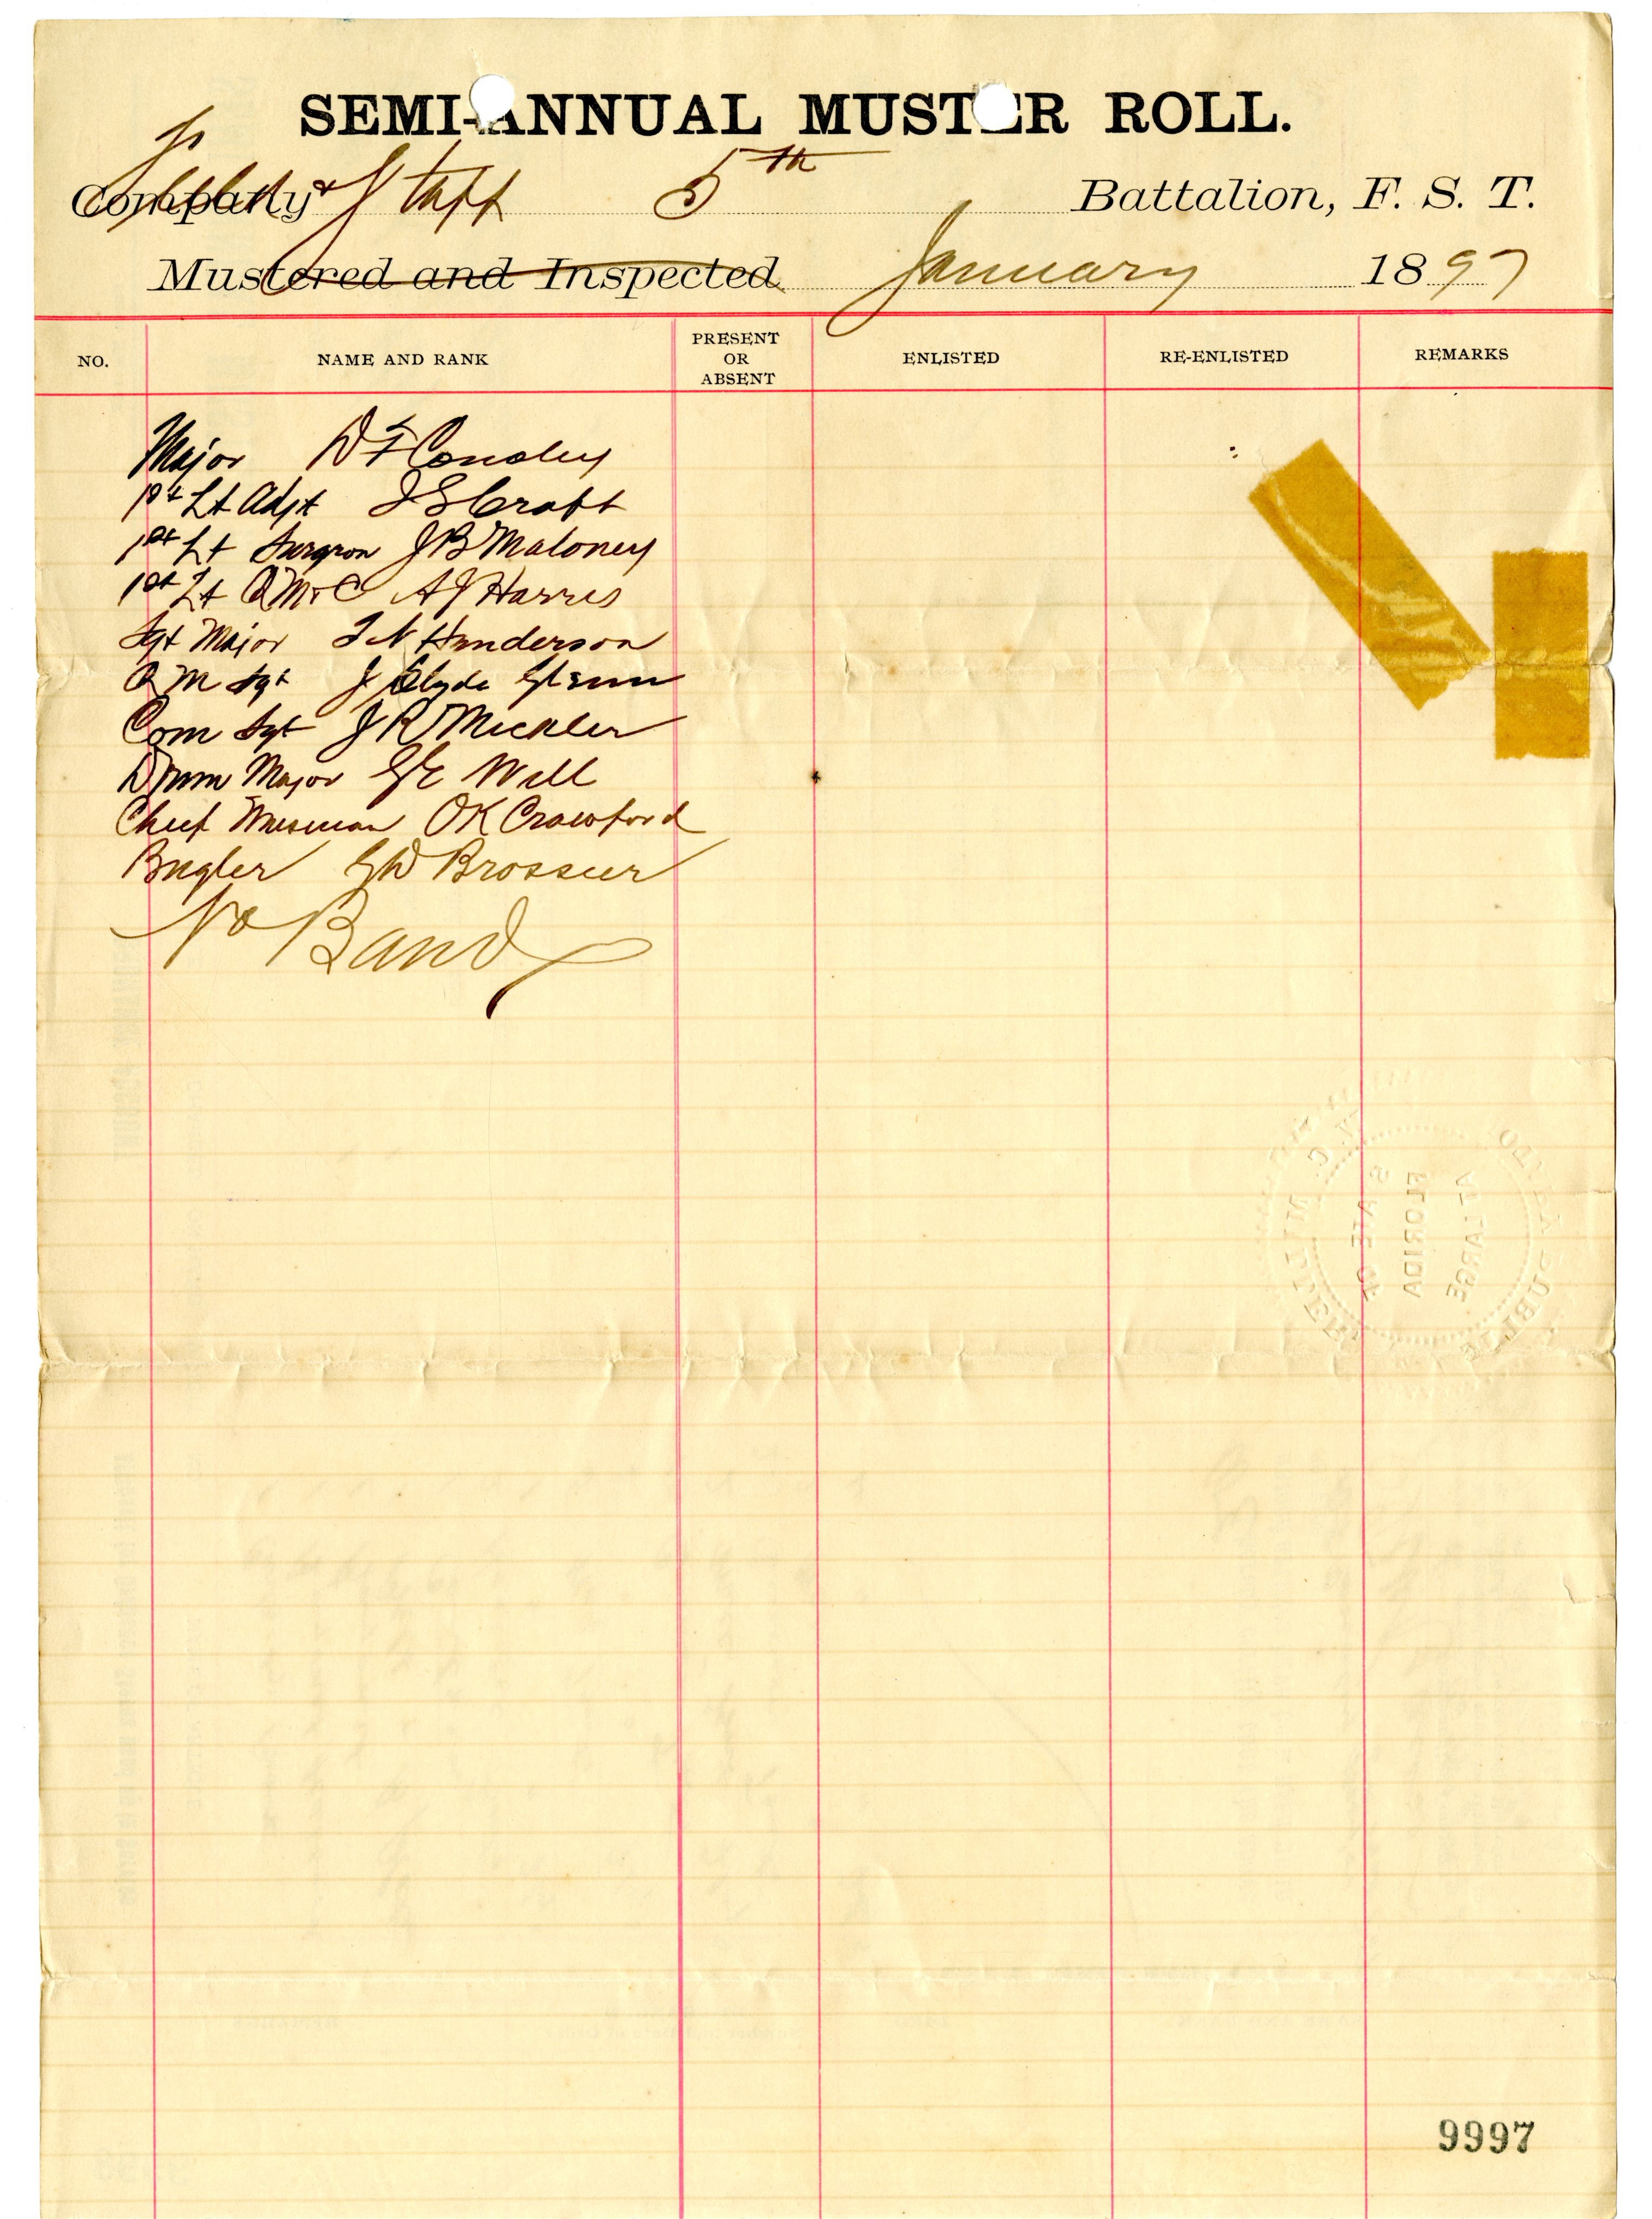 SEMI-ANNUAL MUSTER ROLL.
Company Field & Staff 5th Battalion, F. S. T.
Mustered and Inspected January 1897
NO. NAME AND RANK PRESENT OR ABSENT ENLISTED RE-ENLISTED REMARKS
Major W F Conoley
1st Lt Adjt
1st Lt Surgeon J B Maloney
1st Lt QM & C A J Harris
Sgt Major Henderson
Q M Sgt J Clyde Glenn
Com Sgt J R Mickler
Drum Major Will
Chief Musician O K Crawford
Bugler G W Brossier
No Band
FLORIDA
AT LARGE
9997